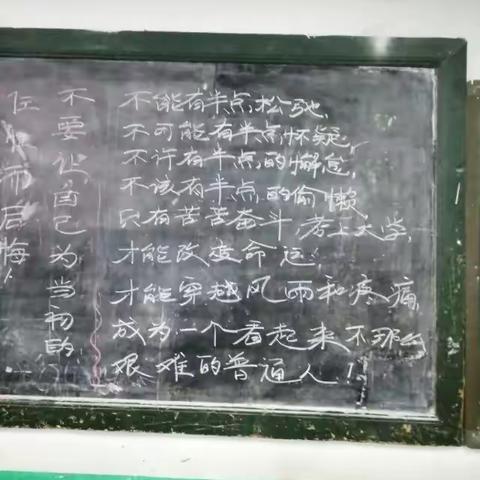 不能有半点松弛,
不可能有半点怀疑,
不许有半点的懈怠,
不该有半点的偷懒,
只有苦苦奋斗,考上大学,
才能改变命运,
才能穿越风雨和疼痛,
成为一个看起来不那么
艰难的普通人!
不要让自己为当初的
而后悔!